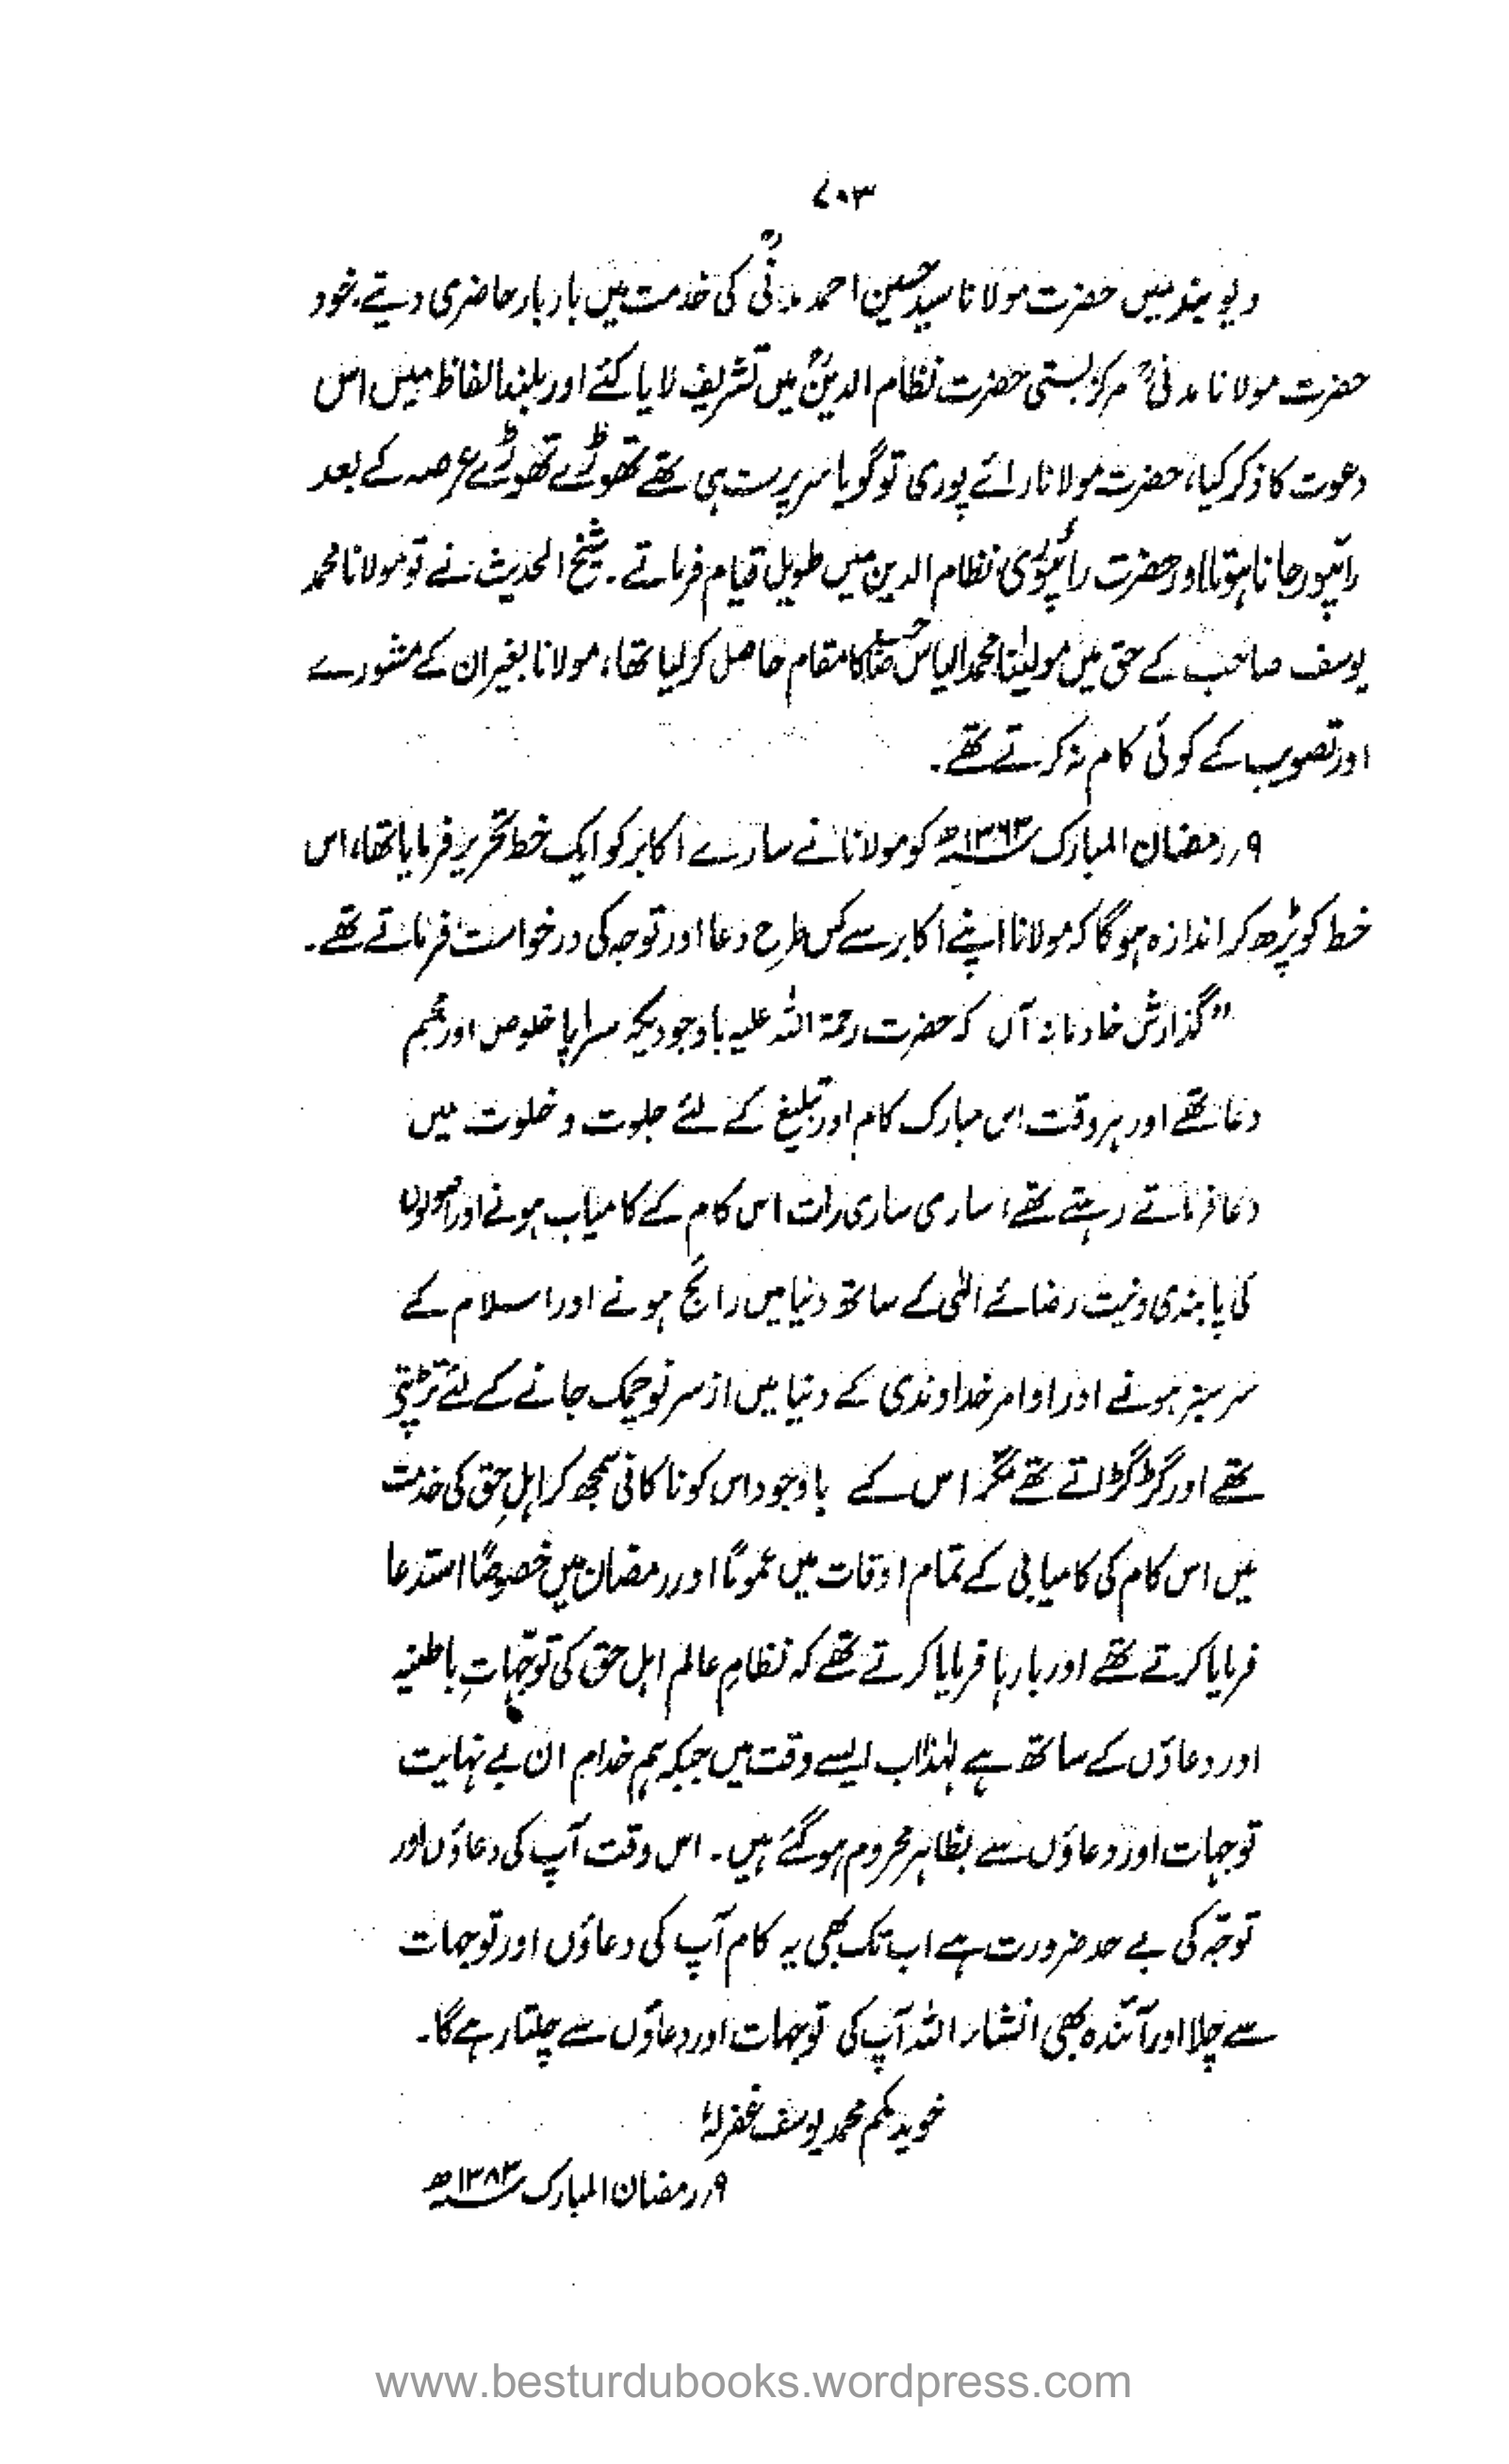 ۷۰۳
دیوبند میں حضرت مولانا سید حسین احمد مدنیؒ کی خدمت میں بار بار حاضری دیتے، خود
حضرت مولانا مدنیؒ مرکز بستی حضرت نظام الدینؒ میں تشریف لایا کئے اور بلند الفاظ میں اس
دعوت کا ذکر کیا، حضرت مولانا رائے پوری تو گویا سرپرست ہی تھے تھوڑے تھوڑے عرصہ کے بعد
رائپور جانا ہوتا اور حضرت رائپوریؒ نظام الدین میں طویل قیام فرماتے۔ شیخ الحدیث نے تو مولانا محمد
یوسف صاحب کے حق میں مولیٰنا محمد الیاس صاحبؒ کا مقام حاصل کر لیا تھا، مولانا بغیر ان کے مشورے
اور تصویب کے کوئی کام نہ کرتے تھے۔
۹؍ رمضان المبارک ۱۳۶۳ھ کو مولانا نے سارے اکابر کو ایک خط تحریر فرمایا تھا، اس
خط کو پڑھ کر اندازہ ہوگا کہ مولانا اپنے اکابر سے کس طرح دعا اور توجہ کی درخواست فرماتے تھے۔
”گذارش خادمانہ آں کہ حضرت رحمۃ اللہ علیہ باوجودیکہ سراپا خلوص اور مجسم
دعا تھے اور ہر وقت اس مبارک کام اور تبلیغ کے لئے جلوت و خلوت میں
دعا فرماتے رہتے تھے، ساری ساری رات اس کام کے کامیاب ہونے اور اصولوں
کی پابندی و نیت رضائے الٰہی کے ساتھ دنیا میں رائج ہونے اور اسلام کے
سرسبز ہونے اور اوامر خداوندی کے دنیا میں از سر نو چمک جانے کے لئے تڑپتے
تھے اور گڑگڑاتے تھے مگر اس کے باوجود اس کو ناکافی سمجھ کر اہلِ حق کی خدمت
میں اس کام کی کامیابی کے تمام اوقات میں عموماً اور رمضان میں خصوصاً استدعا
فرمایا کرتے تھے اور بارہا فرمایا کرتے تھے کہ نظامِ عالم اہل حق کی توجّہاتِ باطنیہ
اور دعاؤں کے ساتھ ہے لہٰذا اب ایسے وقت میں جبکہ ہم خدام ان بے نہایت
توجہات اور دعاؤں سے بظاہر محروم ہوگئے ہیں۔ اس وقت آپ کی دعاؤں اور
توجّہ کی بے حد ضرورت ہے اب تک بھی یہ کام آپ کی دعاؤں اور توجہات
سے چلا اور آئندہ بھی انشاء اللہ آپ کی توجہات اور دعاؤں سے چلتا رہے گا۔
خویدمکم محمد یوسف غفرلہٗ
۹؍ رمضان المبارک ۱۳۸۳ھ
www.besturdubooks.wordpress.com